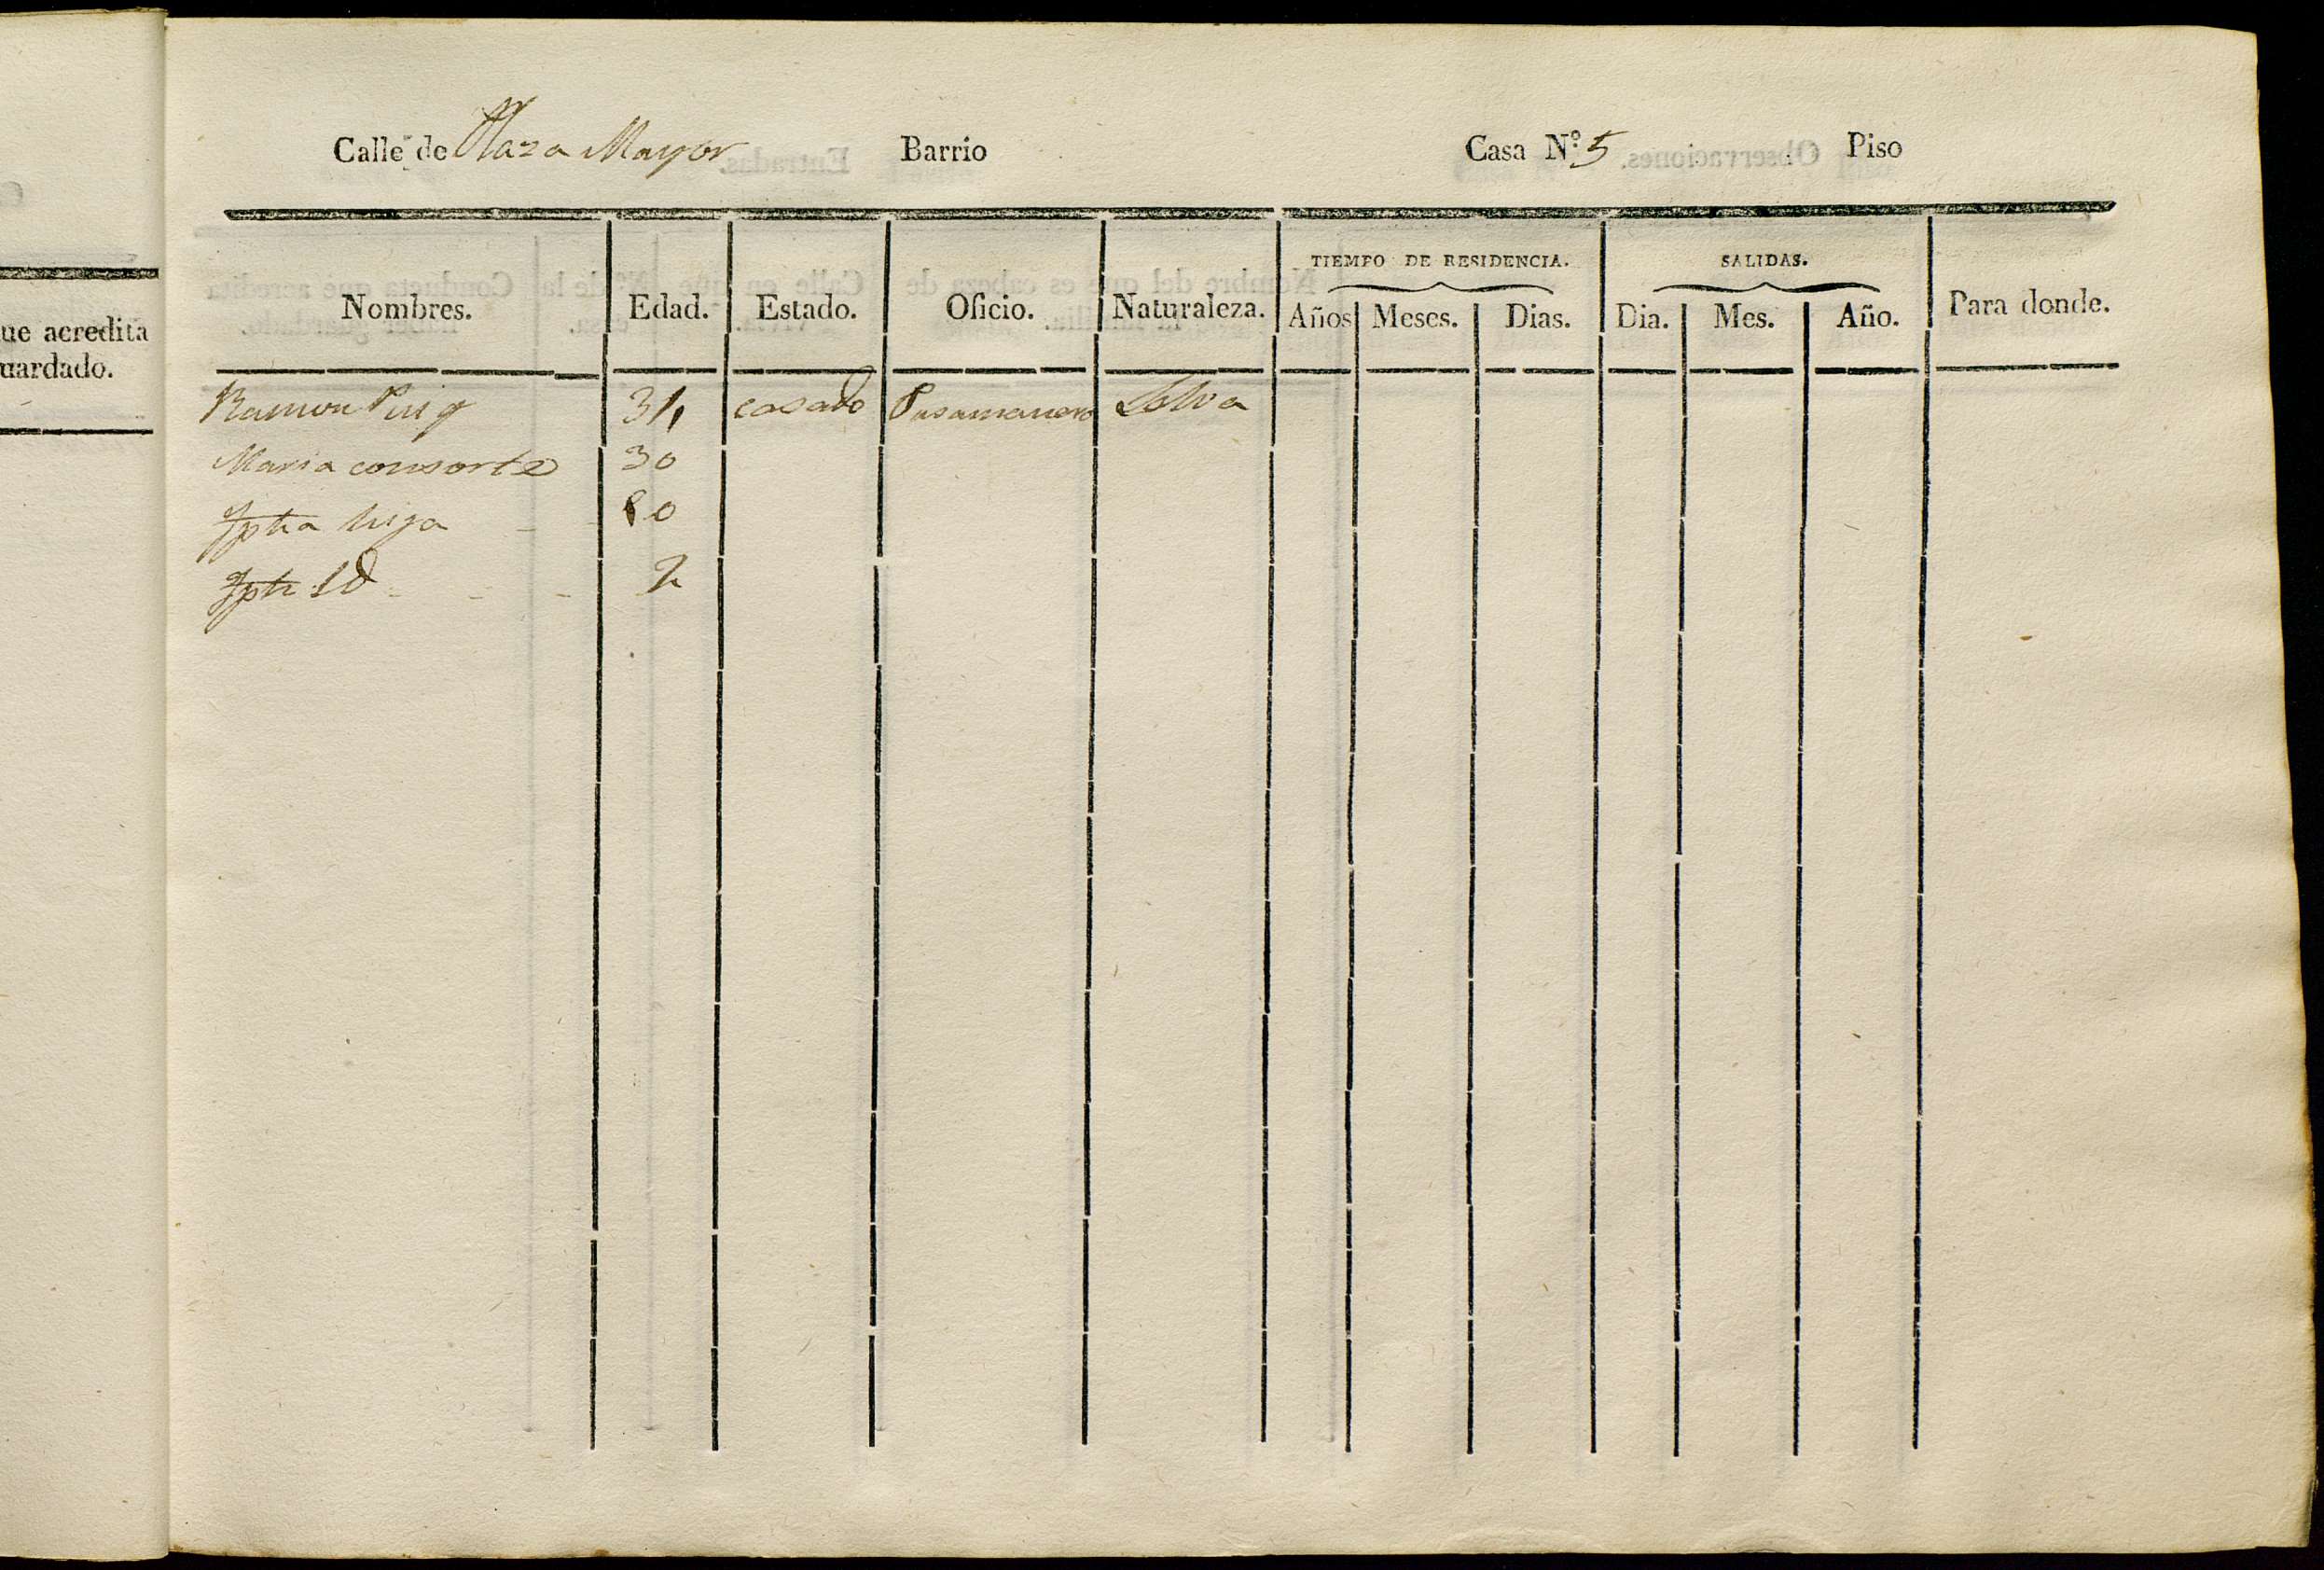 Calle de Plaza Mayor Barrio Casa N.º 5 Piso
TIEMPO DE RESIDENCIA. SALIDAS.
Nombres. Edad. Estado. Oficio. Naturaleza. Años Meses. Dias. Dia. Mes. Año. Para donde.
Ramon Puig 34 casado Pasamanero
Maria consorte 30
Jpha hija
Jph id 2
ue acredita
uardado.